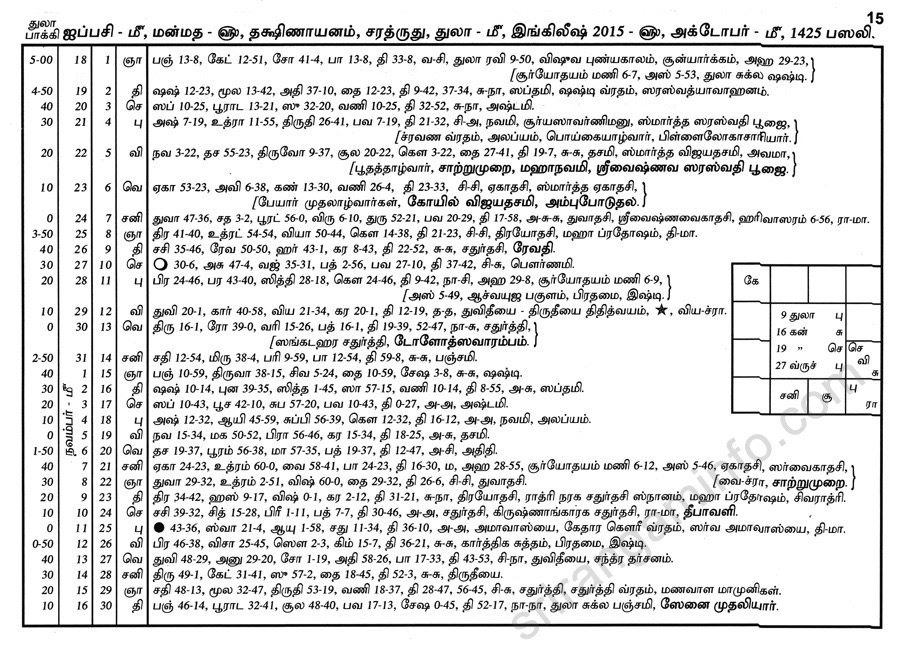 15
துலா பாக்கி ஐப்பசி - மீ, மன்மத - ௵, தக்ஷிணாயனம், சரத்ருது, துலா - மீ, இங்கிலீஷ் 2015 - ௵, அக்டோபர் - மீ, 1425 பஸலி.
5-00 18 1 ஞா பஞ் 13-8, கேட் 12-51, சோ 41-4, பா 13-8, தி 33-8, வ-சி, துலா ரவி 9-50, விஷுவ புண்யகாலம், சூன்யார்க்கம், அஹ 29-23,
[சூர்யோதயம் மணி 6-7, அஸ் 5-53, துலா சுக்ல ஷஷ்டி.
4-50 19 2 தி ஷஷ் 12-23, மூல 13-42, அதி 37-10, தை 12-23, தி 9-42, 37-34, சு-நா, ஸப்தமி, ஷஷ்டி வ்ரதம், ஸரஸ்வத்யாவாஹனம்.
40 20 3 செ ஸப் 10-25, பூராட 13-21, ஸு 32-20, வணி 10-25, தி 32-52, சு-நா, அஷ்டமி.
30 21 4 பு அஷ் 7-19, உத்ரா 11-55, திருதி 26-41, பவ 7-19, தி 21-32, சி-அ, நவமி, சூர்யஸாவர்ணிமனு, ஸ்மார்த்த ஸரஸ்வதி பூஜை,
[ச்ரவண வ்ரதம், அலப்யம், பொய்கையாழ்வார், பிள்ளைலோகாசாரியார்.
20 22 5 வி நவ 3-22, தச 55-23, திருவோ 9-37, சூல 20-22, கௌ 3-22, தை 27-41, தி 19-7, சு-சு, தசமி, ஸ்மார்த்த விஜயதசமி, அவமா,
[பூதத்தாழ்வார், சாற்றுமுறை, மஹாநவமி, ஸ்ரீவைஷ்ணவ ஸரஸ்வதி பூஜை.
10 23 6 வெ ஏகா 53-23, அவி 6-38, கண் 13-30, வணி 26-4, தி 23-33, சி-சி, ஏகாதசி, ஸ்மார்த்த ஏகாதசி,
[பேயார் முதலாழ்வார்கள், கோயில் விஜயதசமி, அம்புபோடுதல்.
0 24 7 சனி துவா 47-36, சத 3-2, பூரட் 56-0, விரு 6-10, துரு 52-21, பவ 20-29, தி 17-58, அ-சு-சு, துவாதசி, ஸ்ரீவைஷ்ணவைகாதசி, ஹரிவாஸரம் 6-56, ரா-மா.
3-50 25 8 ஞா திர 41-40, உத்ரட் 54-54, வியா 50-44, கௌ 14-38, தி 21-23, சி-சி, திரயோதசி, மஹா ப்ரதோஷம், தி-மா.
40 26 9 தி சசி 35-46, ரேவ 50-50, ஹர் 43-1, கர 8-43, தி 22-52, சு-சு, சதுர்தசி, ரேவதி.
30 27 10 செ 🌕 30-6, அசு 47-4, வஜ் 35-31, பத் 2-56, பவ 27-10, தி 37-42, சி-சு, பௌர்ணமி.
20 28 11 பு பிர 24-46, பர 43-40, ஸித்தி 28-18, கௌ 24-46, தி 9-42, நா-சி, அஹ 29-8, சூர்யோதயம் மணி 6-9,
[அஸ் 5-49, ஆச்வயுஜ பகுளம், பிரதமை, இஷ்டி.
10 29 12 வி துவி 20-1, கார் 40-58, விய 21-34, கர 20-1, தி 12-19, த-த, துவிதீயை - திருதீயை திதித்வயம், ★, விய-ச்ரா.
0 30 13 வெ திரு 16-1, ரோ 39-0, வரி 15-26, பத் 16-1, தி 19-39, 52-47, நா-சு, சதுர்த்தி,
[ஸங்கடஹர சதுர்த்தி, டோளோத்ஸவாரம்பம்.
2-50 31 14 சனி சதி 12-54, மிரு 38-4, பரி 9-59, பா 12-54, தி 59-8, சு-சு, பஞ்சமி.
நவம்பர் - மீ
40 1 15 ஞா பஞ் 10-59, திருவா 38-15, சிவ 5-24, தை 10-59, சேஷ 3-8, சு-சு, ஷஷ்டி.
30 2 16 தி ஷஷ் 10-14, புன 39-35, ஸித்த 1-45, ஸா 57-15, வணி 10-14, தி 8-55, அ-சு, ஸப்தமி.
20 3 17 செ ஸப் 10-43, பூச 42-10, சுப 57-20, பவ 10-43, தி 0-27, அ-அ, அஷ்டமி.
10 4 18 பு அஷ் 12-32, ஆயி 45-59, சுப்பி 56-39, கௌ 12-32, தி 16-12, அ-அ, நவமி, அலப்யம்.
0 5 19 வி நவ 15-34, மக 50-52, பிரா 56-46, கர 15-34, தி 18-25, அ-சு, தசமி.
1-50 6 20 வெ தச 19-37, பூரம் 56-38, மா 57-35, பத் 19-37, தி 12-47, அ-சி, அதிதி.
40 7 21 சனி ஏகா 24-23, உத்ரம் 60-0, வை 58-41, பா 24-23, தி 16-30, ம, அஹ 28-55, சூர்யோதயம் மணி 6-12, அஸ் 5-46, ஏகாதசி, ஸர்வைகாதசி,
30 8 22 ஞா துவா 29-32, உத்ரம் 2-31, விஷ் 60-0, தை 29-32, தி 26-6, சி-சி, துவாதசி. [வை-ச்ரா, சாற்றுமுறை.
20 9 23 தி திர 34-42, ஹஸ் 9-17, விஷ் 0-1, கர 2-12, தி 31-21, சு-நா, திரயோதசி, ராத்ரி நரக சதுர்தசி ஸ்நானம், மஹா ப்ரதோஷம், சிவராத்ரி.
10 10 24 செ சசி 39-32, சித் 15-28, பிரீ 1-11, பத் 7-7, தி 30-46, அ-அ, சதுர்தசி, கிருஷ்ணாங்காரக சதுர்தசி, ரா-மா, தீபாவளி.
0 11 25 பு ● 43-36, ஸ்வா 21-4, ஆயு 1-58, சது 11-34, தி 36-10, அ-அ, அமாவாஸ்யை, கேதார கௌரீ வ்ரதம், ஸர்வ அமாவாஸ்யை, தி-மா.
0-50 12 26 வி பிர 46-38, விசா 25-45, ஸௌ 2-3, கிம் 15-7, தி 36-21, சு-சு, கார்த்திக சுத்தம், பிரதமை, இஷ்டி.
40 13 27 வெ துவி 48-29, அனு 29-20, சோ 1-19, அதி 58-26, பா 17-33, தி 43-53, சி-நா, துவிதீயை, சந்த்ர தர்சனம்.
30 14 28 சனி திரு 49-1, கேட் 31-41, ஸு 57-2, தை 18-45, தி 52-3, சு-சு, திருதீயை.
20 15 29 ஞா சதி 48-13, மூல 32-47, திருதி 53-19, வணி 18-37, தி 28-47, 56-45, சி-சு, சதுர்த்தி, சதுர்த்தி வ்ரதம், மணவாள மாமுனிகள்.
10 16 30 தி பஞ் 46-14, பூராட 32-41, சூல 48-40, பவ 17-13, சேஷ 0-45, தி 52-17, நா-நா, துலா சுக்ல பஞ்சமி, ஸேனை முதலியார்.
கே
9 துலா பு
16 கன் சு
19 " செ
27 வ்ருச் பு
செ வி சு
சனி சூ பு ரா
srirangaminfo.com